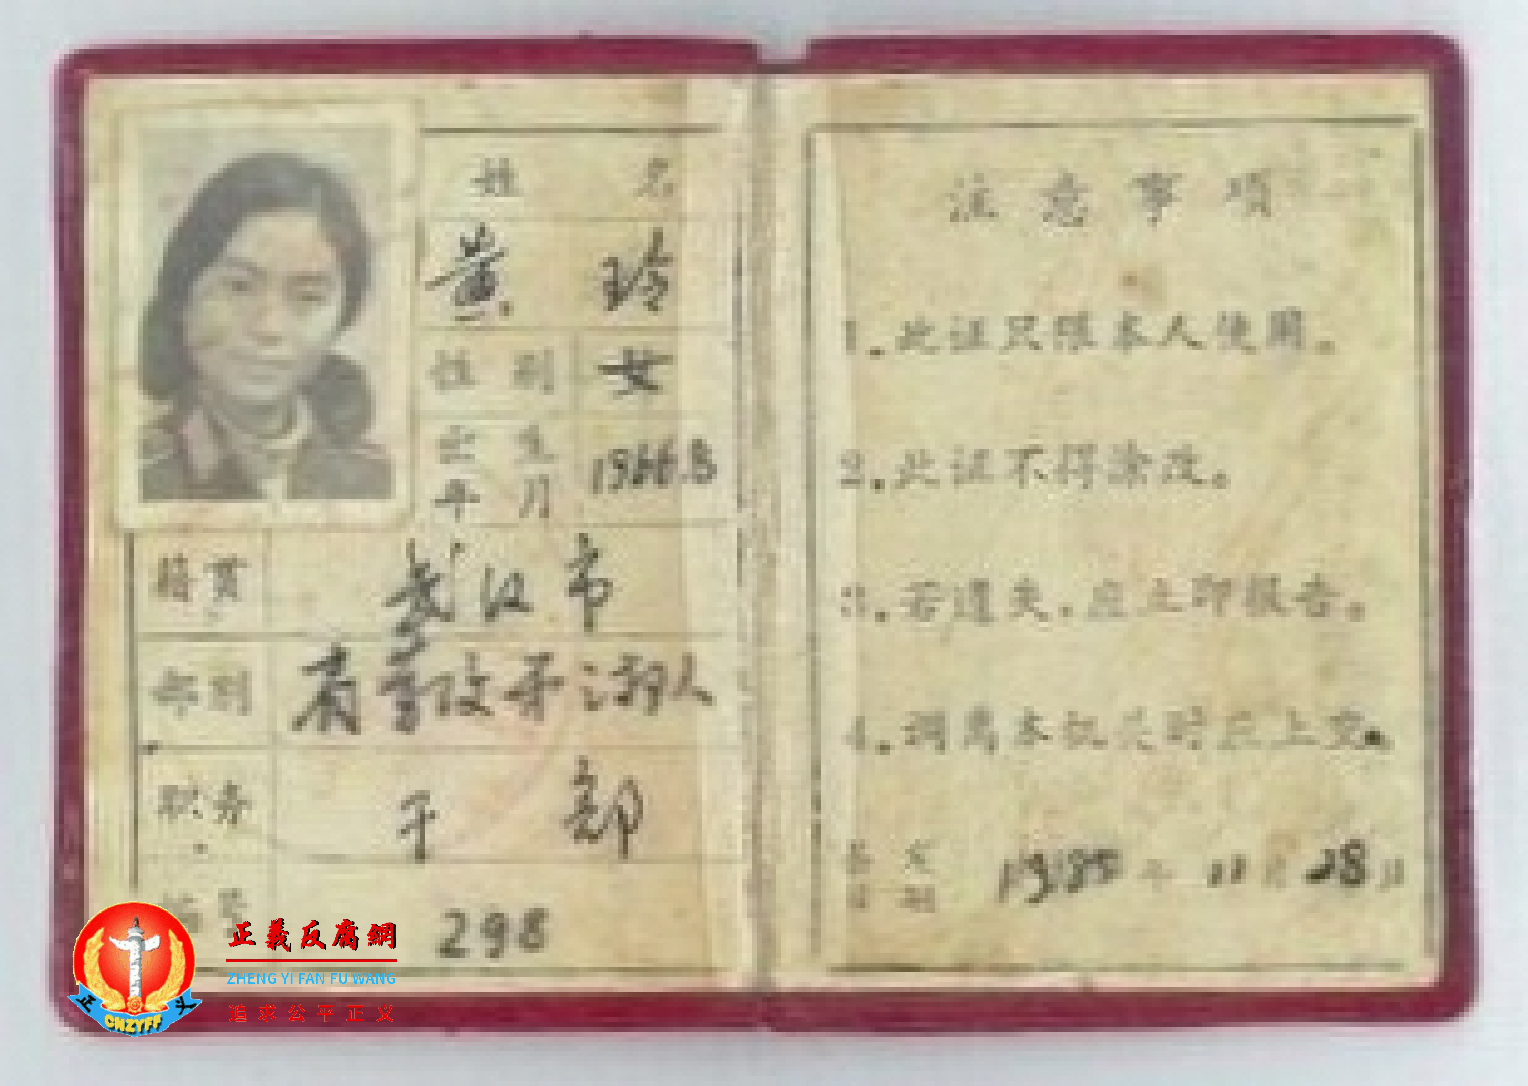 姓 名
黄 玲
性 别 女
出 生
年 月
籍贯 武汉市
部别
职务 干 部
编号 298
注 意 事 项
1.此证只限本人使用。
2.此证不得涂改。
3.若遗失,应立即报告。
4.调离本机关时应上交。
年 月 28日
正義反腐網
ZHENG YI FAN FU WANG
追求公平正义
正 义
CNZYFF